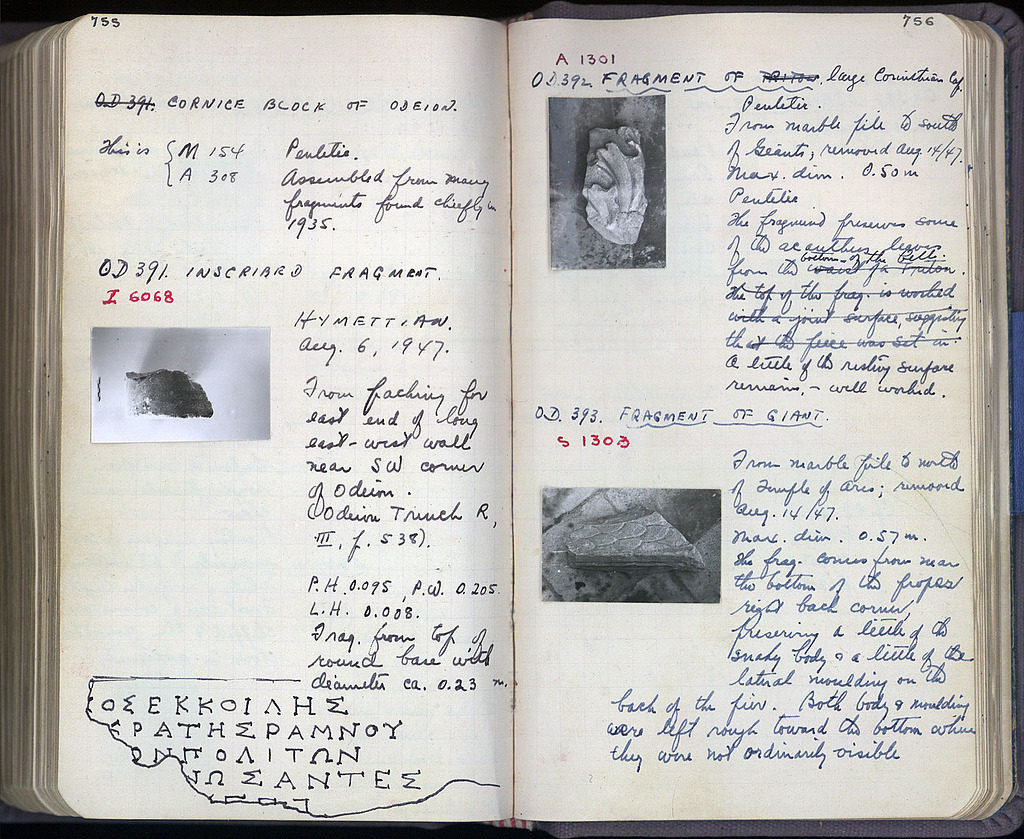 755
OD 391. CORNICE BLOCK OF ODEION.
This is { M 154
A 308
Pentelic.
Assembled from many
fragments found chiefly in
1935.
OD 391. INSCRIBED FRAGMENT.
I 6068
HYMETTIAN.
Aug. 6, 1947.
From packing for
east end of long
east-west wall
near SW corner
of Odeion.
(Odeion Trench R,
III, p. 538).
P.H. 0.095, P.W. 0.205.
L.H. 0.008.
Frag. from top of
round base with
diameter ca. 0.23 m.
ΟΣΕΚΚΟΙΛΗΣ
ΕΡΑΤΗΣΡΑΜΝΟΥ
ΩΝΠΟΛΙΤΩΝ
ΝΩΣΑΝΤΕΣ
756
A 1301
OD.392. FRAGMENT OF TRITON, large Corinthian Cap.
Pentelic.
From marble pile to south
of Giants; removed Aug. 14/47.
Max. dim. 0.50 m
Pentelic
The fragment preserves some
of the acanthus leaves
bottom of the bell.
from the waist of a Triton.
The top of the frag. is worked
with a joint surface, suggesting
that the piece was set in.
A little of the resting surface
remains, - well worked.
OD. 393. FRAGMENT OF GIANT.
S 1303
From marble pile to north
of Temple of Ares; removed
Aug. 14/47.
Max. dim. 0.57 m.
The frag. comes from near
the bottom of the proper
right back corner,
preserving a little of the
snaky body & a little of the
lateral moulding on the
back of the pier. Both body & moulding
were left rough toward the bottom where
they were not ordinarily visible